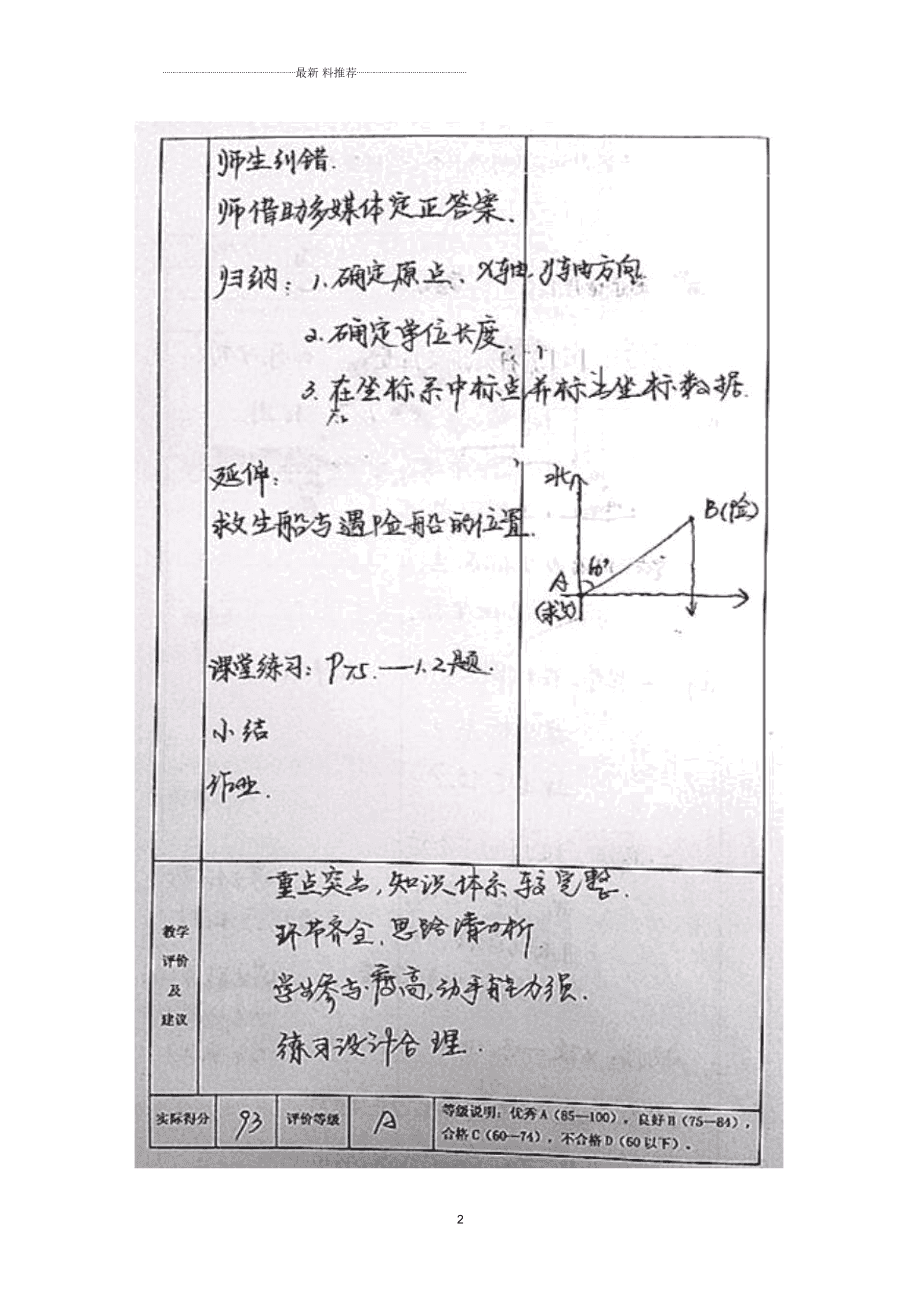 最新 料推荐
师生纠错.
师借助多媒体定正答案.
归纳：1.确定原点、X轴、y轴方向
2.确定单位长度.
3.在坐标系中标点并标出坐标数据.
延伸：
救生船与遇险船的位置.
北
B(险)
60°
A
(救)
课堂练习：P75.—1.2题.
小结
作业.
教学
评价
及
建议
重点突出,知识体系较完整.
环节齐全,思路清晰
学生参与度高,动手能力强.
练习设计合理.
实际得分
93
评价等级
A
等级说明：优秀A（85—100），良好B（75—84），
合格C（60—74），不合格D（60以下）.
2